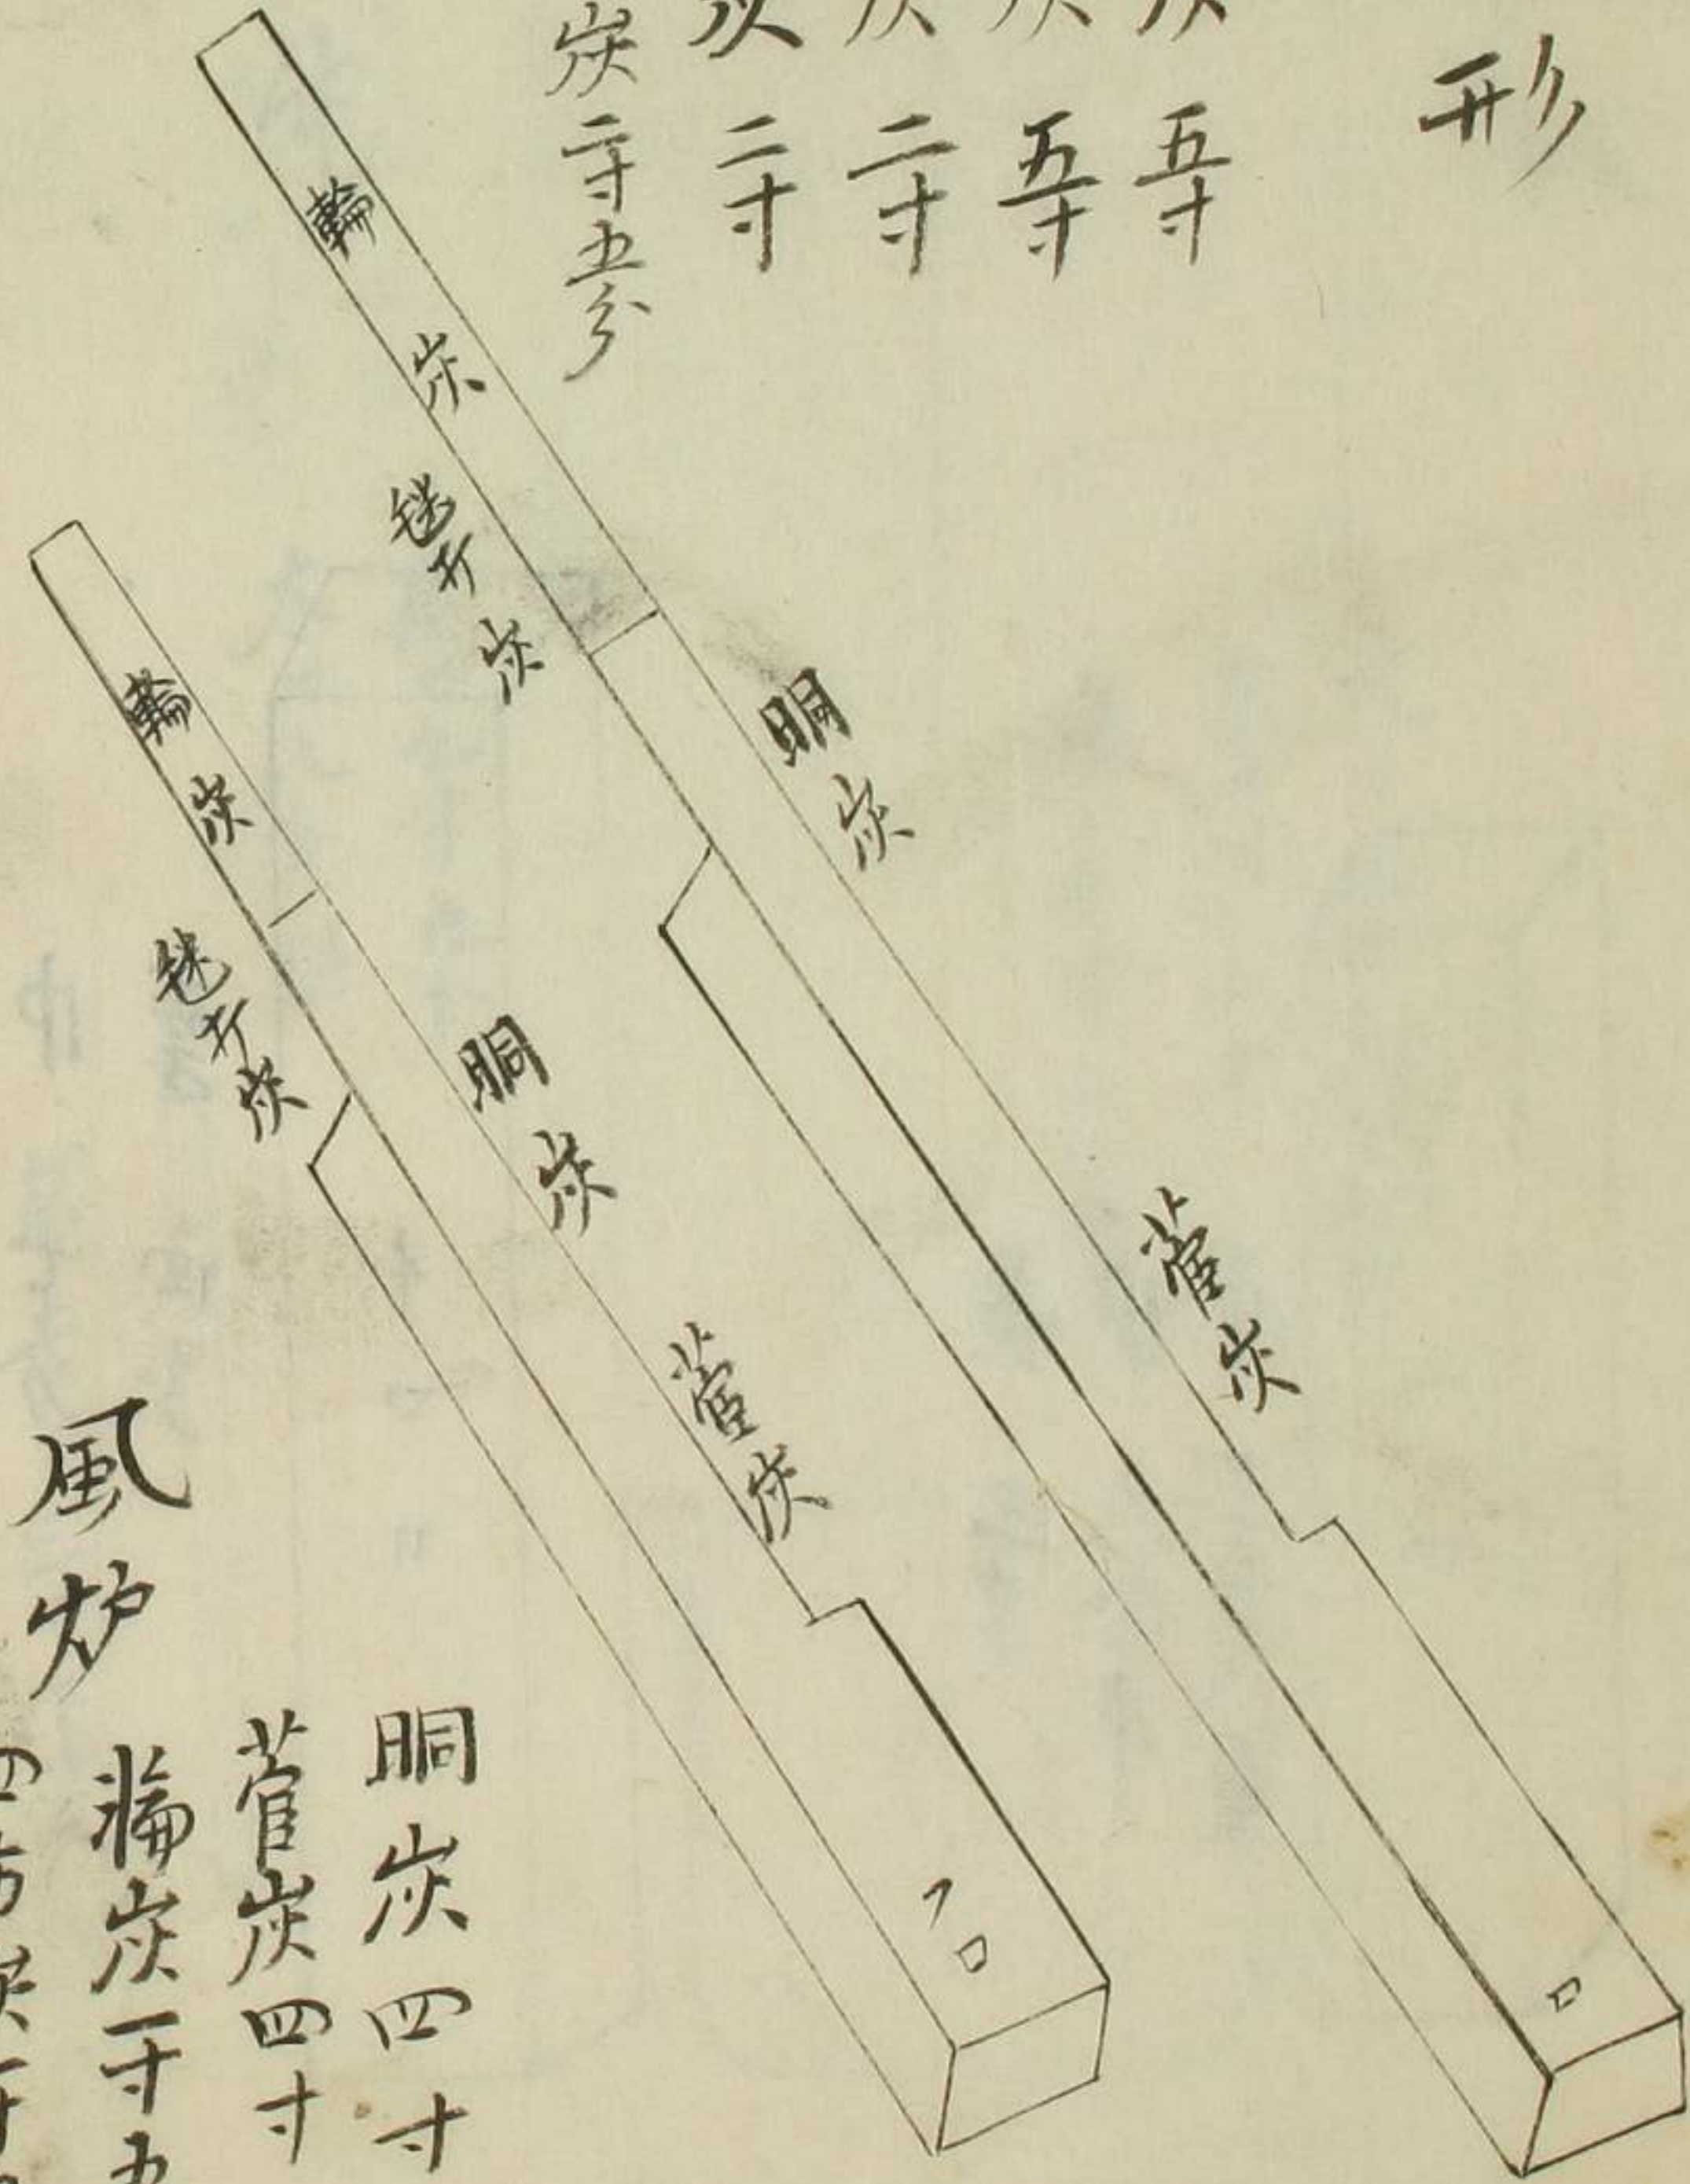 形
五寸
炭五寸
炭二寸
炭二寸
炭二寸五分
輪炭
毬打炭
胴炭
菅炭
ロ
輪炭
毬打炭
胴炭
菅炭
フロ
風炉
胴炭四寸
菅炭四寸
輪炭一寸五